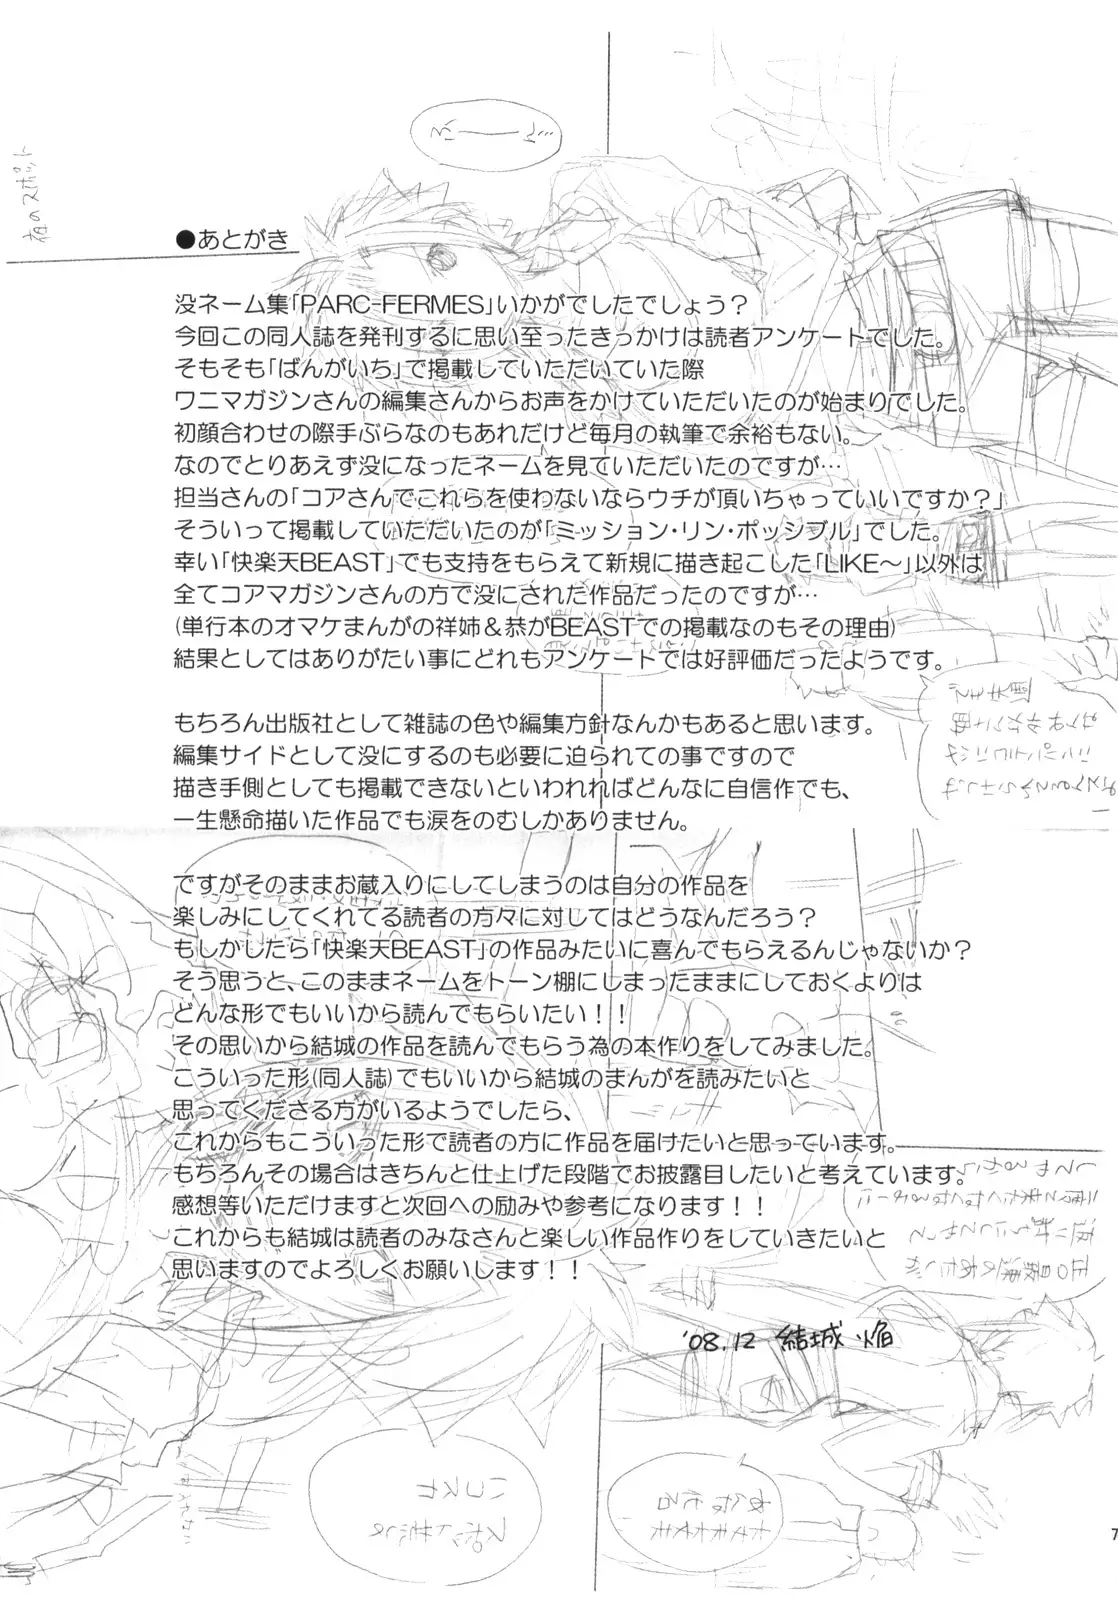 ●あとがき
没ネーム集「PARC-FERMES」いかがでしたでしょう？
今回この同人誌を発刊するに思い至ったきっかけは読者アンケートでした。
そもそも「ばんがいち」で掲載していただいていた際
ワニマガジンさんの編集さんからお声をかけていただいたのが始まりでした。
初顔合わせの際手ぶらなのもあれだけど毎月の執筆で余裕もない。
なのでとりあえず没になったネームを見ていただいたのですが…
担当さんの「コアさんでこれらを使わないならウチが頂いちゃっていいですか？」
そういって掲載していただいたのが「ミッション・リン・ポッシブル」でした。
幸い「快楽天BEAST」でも支持をもらえて新規に描き起こした「LIKE～」以外は
全てコアマガジンさんの方で没にされた作品だったのですが…
(単行本のオマケまんがの祥姉＆恭がBEASTでの掲載なのもその理由)
結果としてはありがたい事にどれもアンケートでは好評価だったようです。
もちろん出版社として雑誌の色や編集方針なんかもあると思います。
編集サイドとして没にするのも必要に迫られての事ですので
描き手側としても掲載できないといわれればどんなに自信作でも、
一生懸命描いた作品でも涙をのむしかありません。
ですがそのままお蔵入りにしてしまうのは自分の作品を
楽しみにしてくれてる読者の方々に対してはどうなんだろう？
もしかしたら「快楽天BEAST」の作品みたいに喜んでもらえるんじゃないか？
そう思うと、このままネームをトーン棚にしまったままにしておくよりは
どんな形でもいいから読んでもらいたい！！
その思いから結城の作品を読んでもらう為の本作りをしてみました。
こういった形(同人誌)でもいいから結城のまんがを読みたいと
思ってくださる方がいるようでしたら、
これからもこういった形で読者の方に作品を届けたいと思っています。
もちろんその場合はきちんと仕上げた段階でお披露目したいと考えています。
感想等いただけますと次回への励みや参考になります！！
これからも結城は読者のみなさんと楽しい作品作りをしていきたいと
思いますのでよろしくお願いします！！
'08.12 結城 焔
7